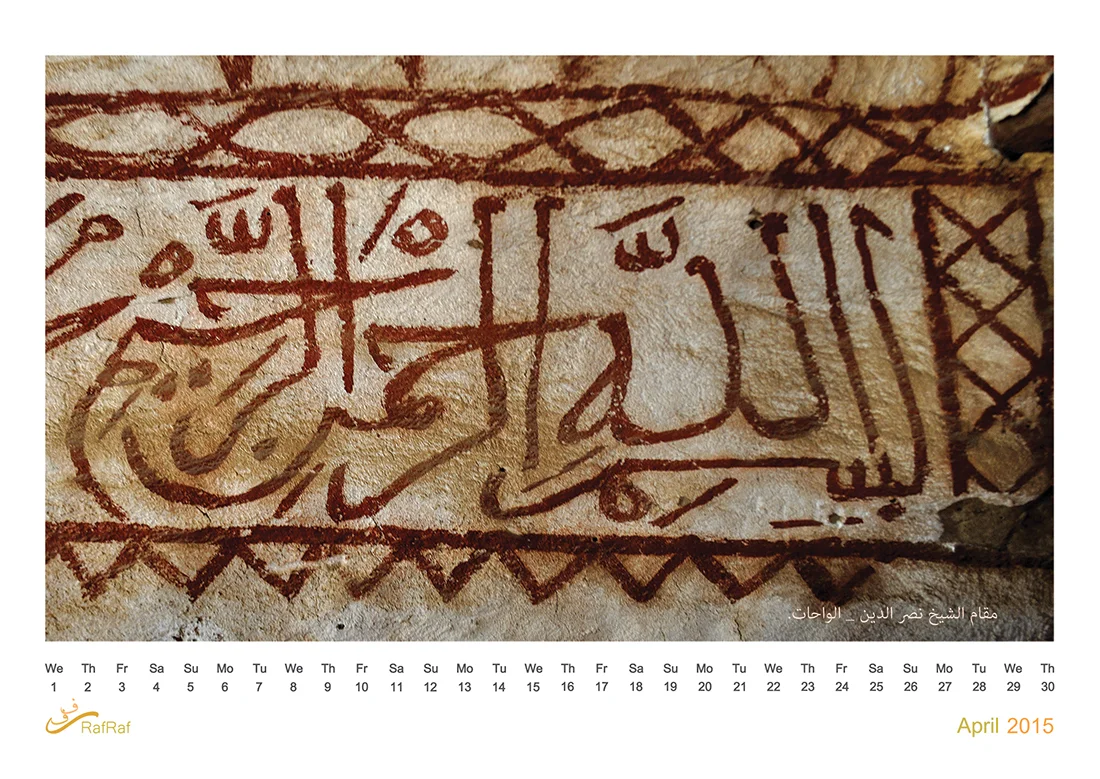 بسم الله الرحمن الرحيم
مقام الشيخ نصر الدين _ الواحات.
We Th Fr Sa Su Mo Tu We Th Fr Sa Su Mo Tu We Th Fr Sa Su Mo Tu We Th Fr Sa Su Mo Tu We Th
1 2 3 4 5 6 7 8 9 10 11 12 13 14 15 16 17 18 19 20 21 22 23 24 25 26 27 28 29 30
RafRaf
April 2015